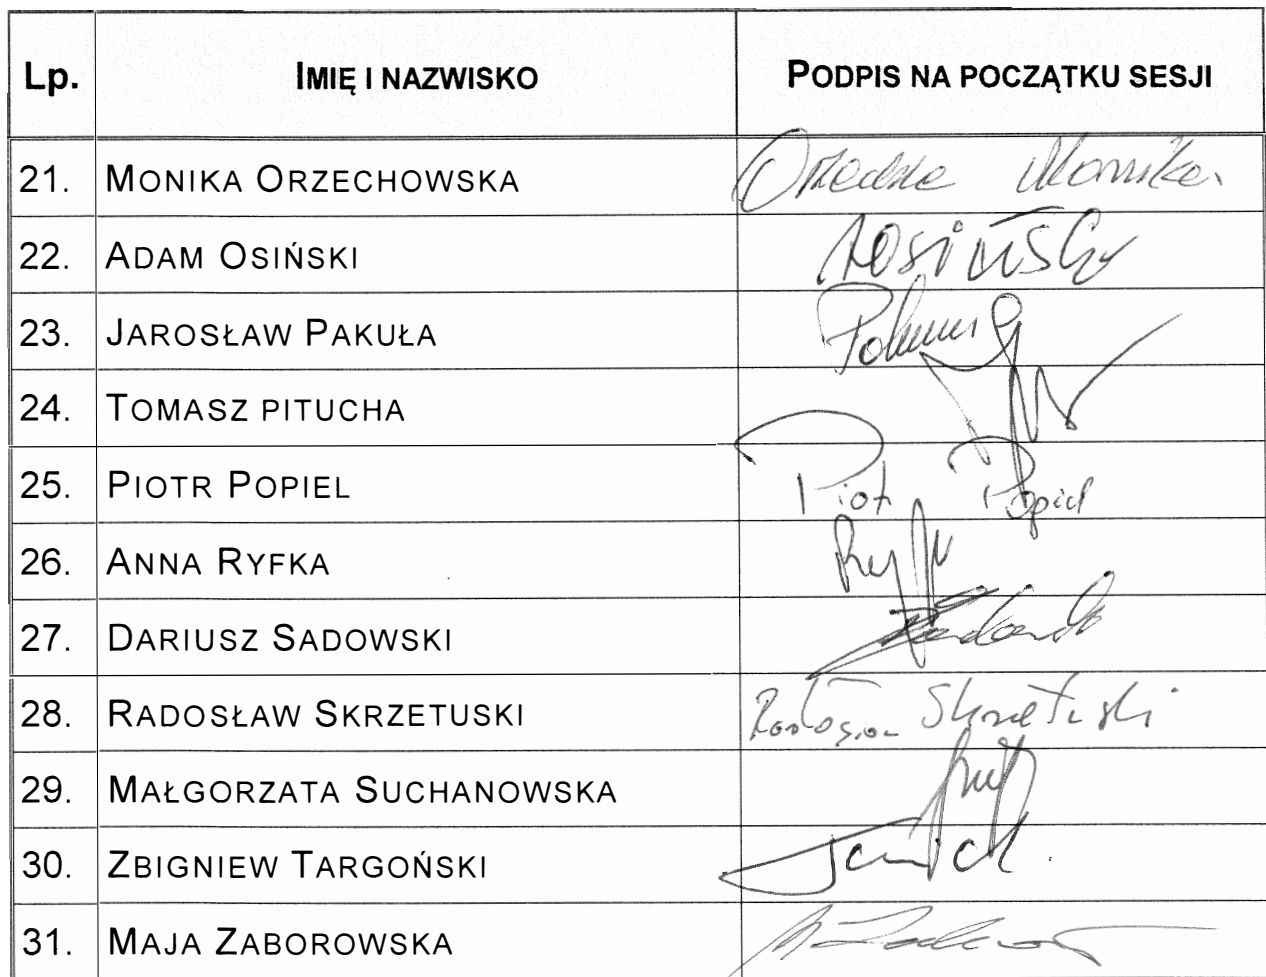 Lp. IMIĘ I NAZWISKO PODPIS NA POCZĄTKU SESJI
21. MONIKA ORZECHOWSKA Monika
22. ADAM OSIŃSKI AOsiński
23. JAROSŁAW PAKUŁA
24. TOMASZ PITUCHA
25. PIOTR POPIEL Piotr Popiel
26. ANNA RYFKA
27. DARIUSZ SADOWSKI
28. RADOSŁAW SKRZETUSKI Skrzetuski
29. MAŁGORZATA SUCHANOWSKA
30. ZBIGNIEW TARGOŃSKI
31. MAJA ZABOROWSKA